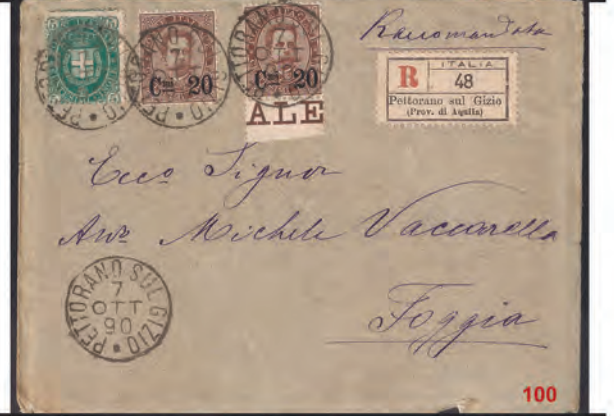 Raccomandata
C.mi 20
C.mi 20
ALE
ITALIA
R 48
Pettorano sul Gizio
(Prov. di Aquila)
Ecco Signor
Avv. Michele Vaccarella
Foggia
PETTORANO SUL GIZIO
7
OTT
90
100